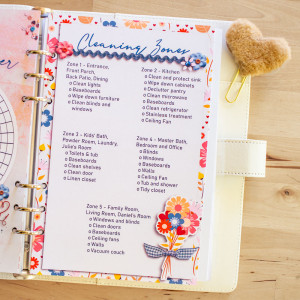 Cleaning Zones
Zone 1 - Entrance,
Front Porch,
Back Patio, Dining
Clean lights
Baseboards
Wipe down furniture
Clean blinds and
windows
Zone 2 - Kitchen
Clean and protect sink
Wipe down cabinets
Declutter pantry
Clean microwave
Baseboards
Clean refrigerator
Stainless treatment
Ceiling Fan
Zone 3 - Kids' Bath,
Powder Room, Laundry,
Julia's Room
Toilets & tub
Baseboards
Clean shelves
Clean door
Linen closet
Zone 4 - Master Bath,
Bedroom and Office
Blinds
Windows
Baseboards
Walls
Ceiling Fan
Tub and shower
Tidy closet
Zone 5 - Family Room,
Living Room, Daniel's Room
Windows and blinds
Doors
Baseboards
Ceiling fans
Walls
Vacuum couch